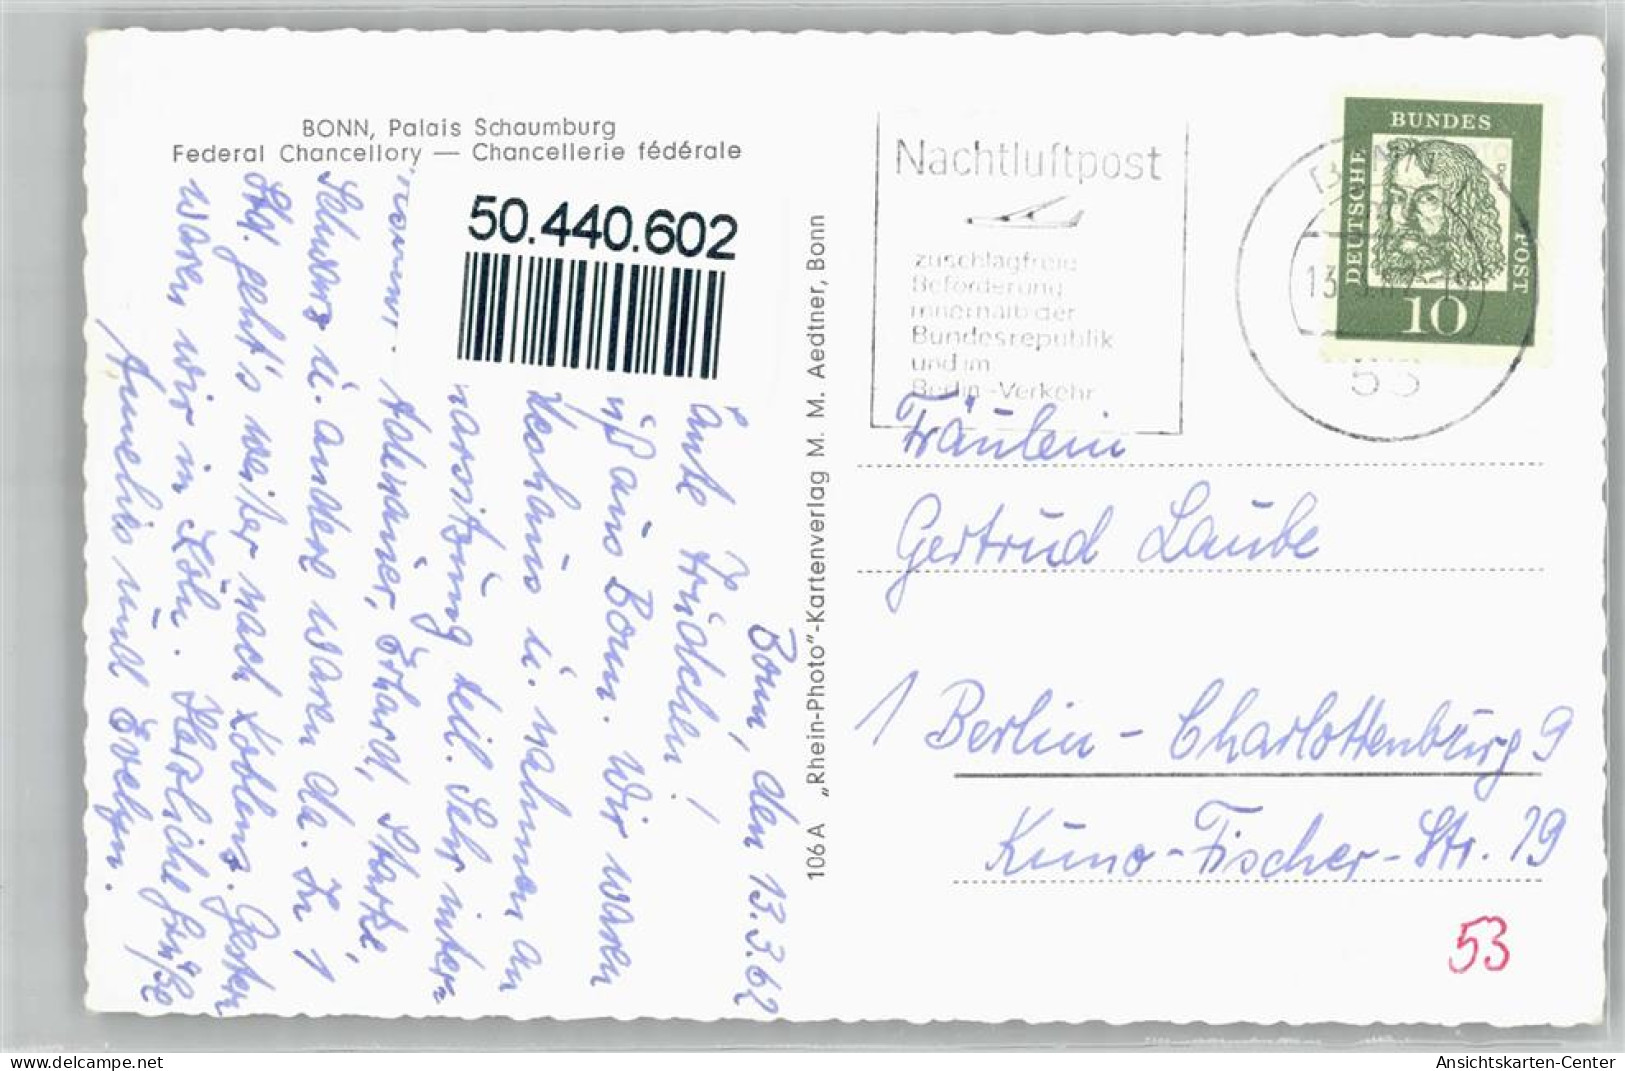 BONN, Palais Schaumburg
Federal Chancellory — Chancellerie fédérale
50.440.602
Bonn, den 13.3.62
Trudchen!
aus Bonn. Wir waren
u. nahmen an
teil. Sehr inter-
Adenauer, Erhard, Starke,
Schwarz u. andere waren da. In 1
Std. geht's weiter nach Koblenz. Gestern
waren wir in Köln. Herzliche Grüße
Annelies und Evelyn.
106 A „Rhein-Photo"-Kartenverlag M. M. Aedtner, Bonn
Nachtluftpost
zuschlagfreie
Beförderung
innerhalb der
Bundesrepublik
und im
Berlin-Verkehr
DEUTSCHE
BUNDES
POST
10
53
Fräulein
Gertrud Laube
1 Berlin - Charlottenburg 9
Kuno-Fischer-Str. 19
53
delcampe.net
Ansichtskarten-Center